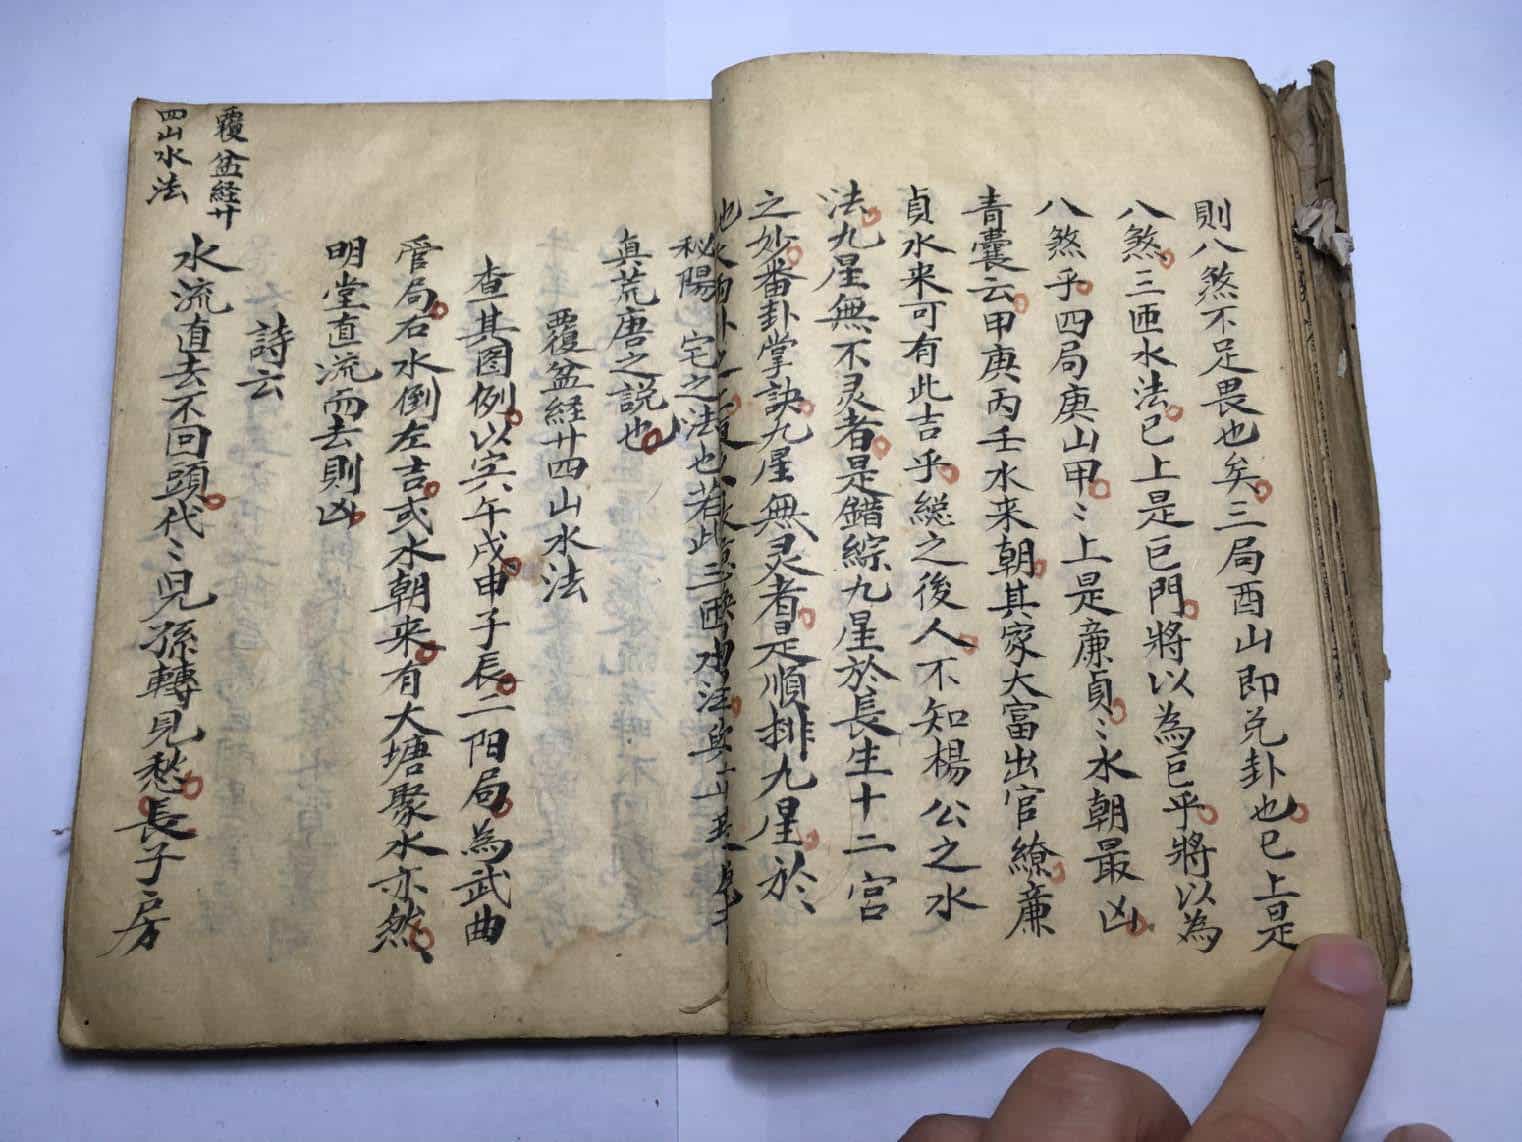 則八煞不足畏也矣三局酉山即兌卦也巳上是
八煞三匝水法已上是巨門將以為巨乎將以為
八煞乎四局庚山甲〻上是廉貞〻水朝最凶
青囊云甲庚丙壬水来朝其家大富出官繚廉
貞水来可有此吉乎緫之後人不知楊公之水
法九星無不灵者是錯綜九星於長生十二宮
之妙番卦掌訣九星無灵者是順排九星於〻
秘陽 宅之法也若此二
真荒唐之説也
覆盆経廿四山水法
查其图例以寅午戌申子辰二阳局為武曲
管局右水倒左吉或水朝来有大塘聚水亦然
明堂直流而去則凶
詩云
水流直去不回頭代〻児孫轉見愁長子房
覆盆経廿
四山水法